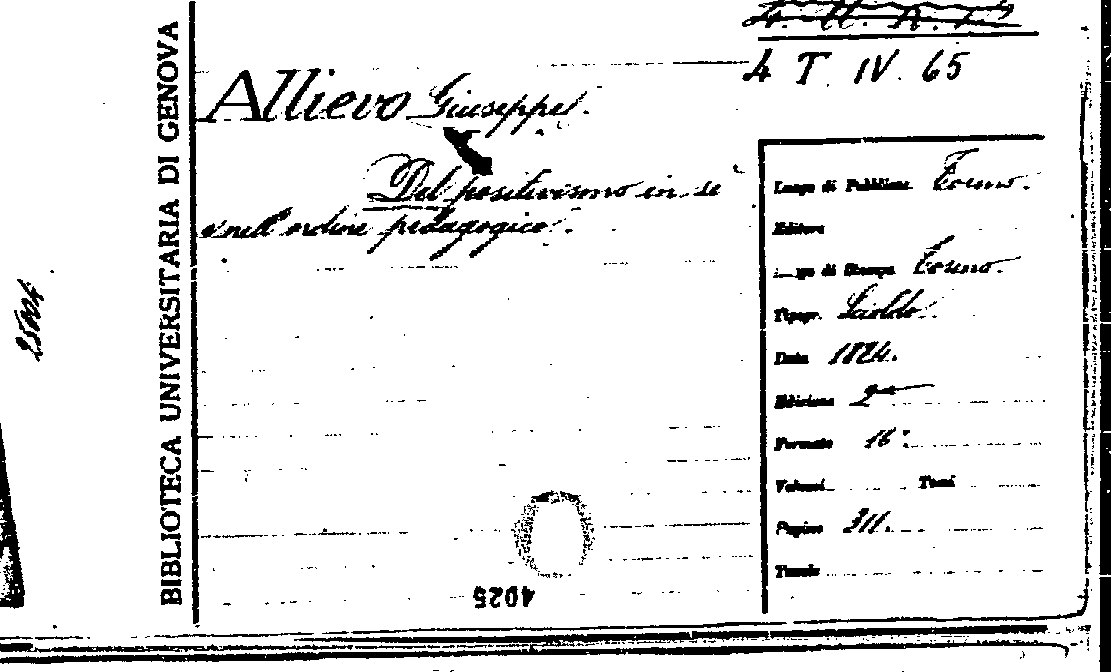 4 T IV. 65
Allievo Giuseppe.
Del positivismo in se
e nell'ordine pedagogico.
BIBLIOTECA UNIVERSITARIA DI GENOVA
25004
Luogo di Pubblicaz. Torino.
Editore
Luogo di Stampa Torino.
Tipogr.
Data
Edizione 2ª
Formato 16°
Volumi Tomi
Pagine 311.
Tavole
4025